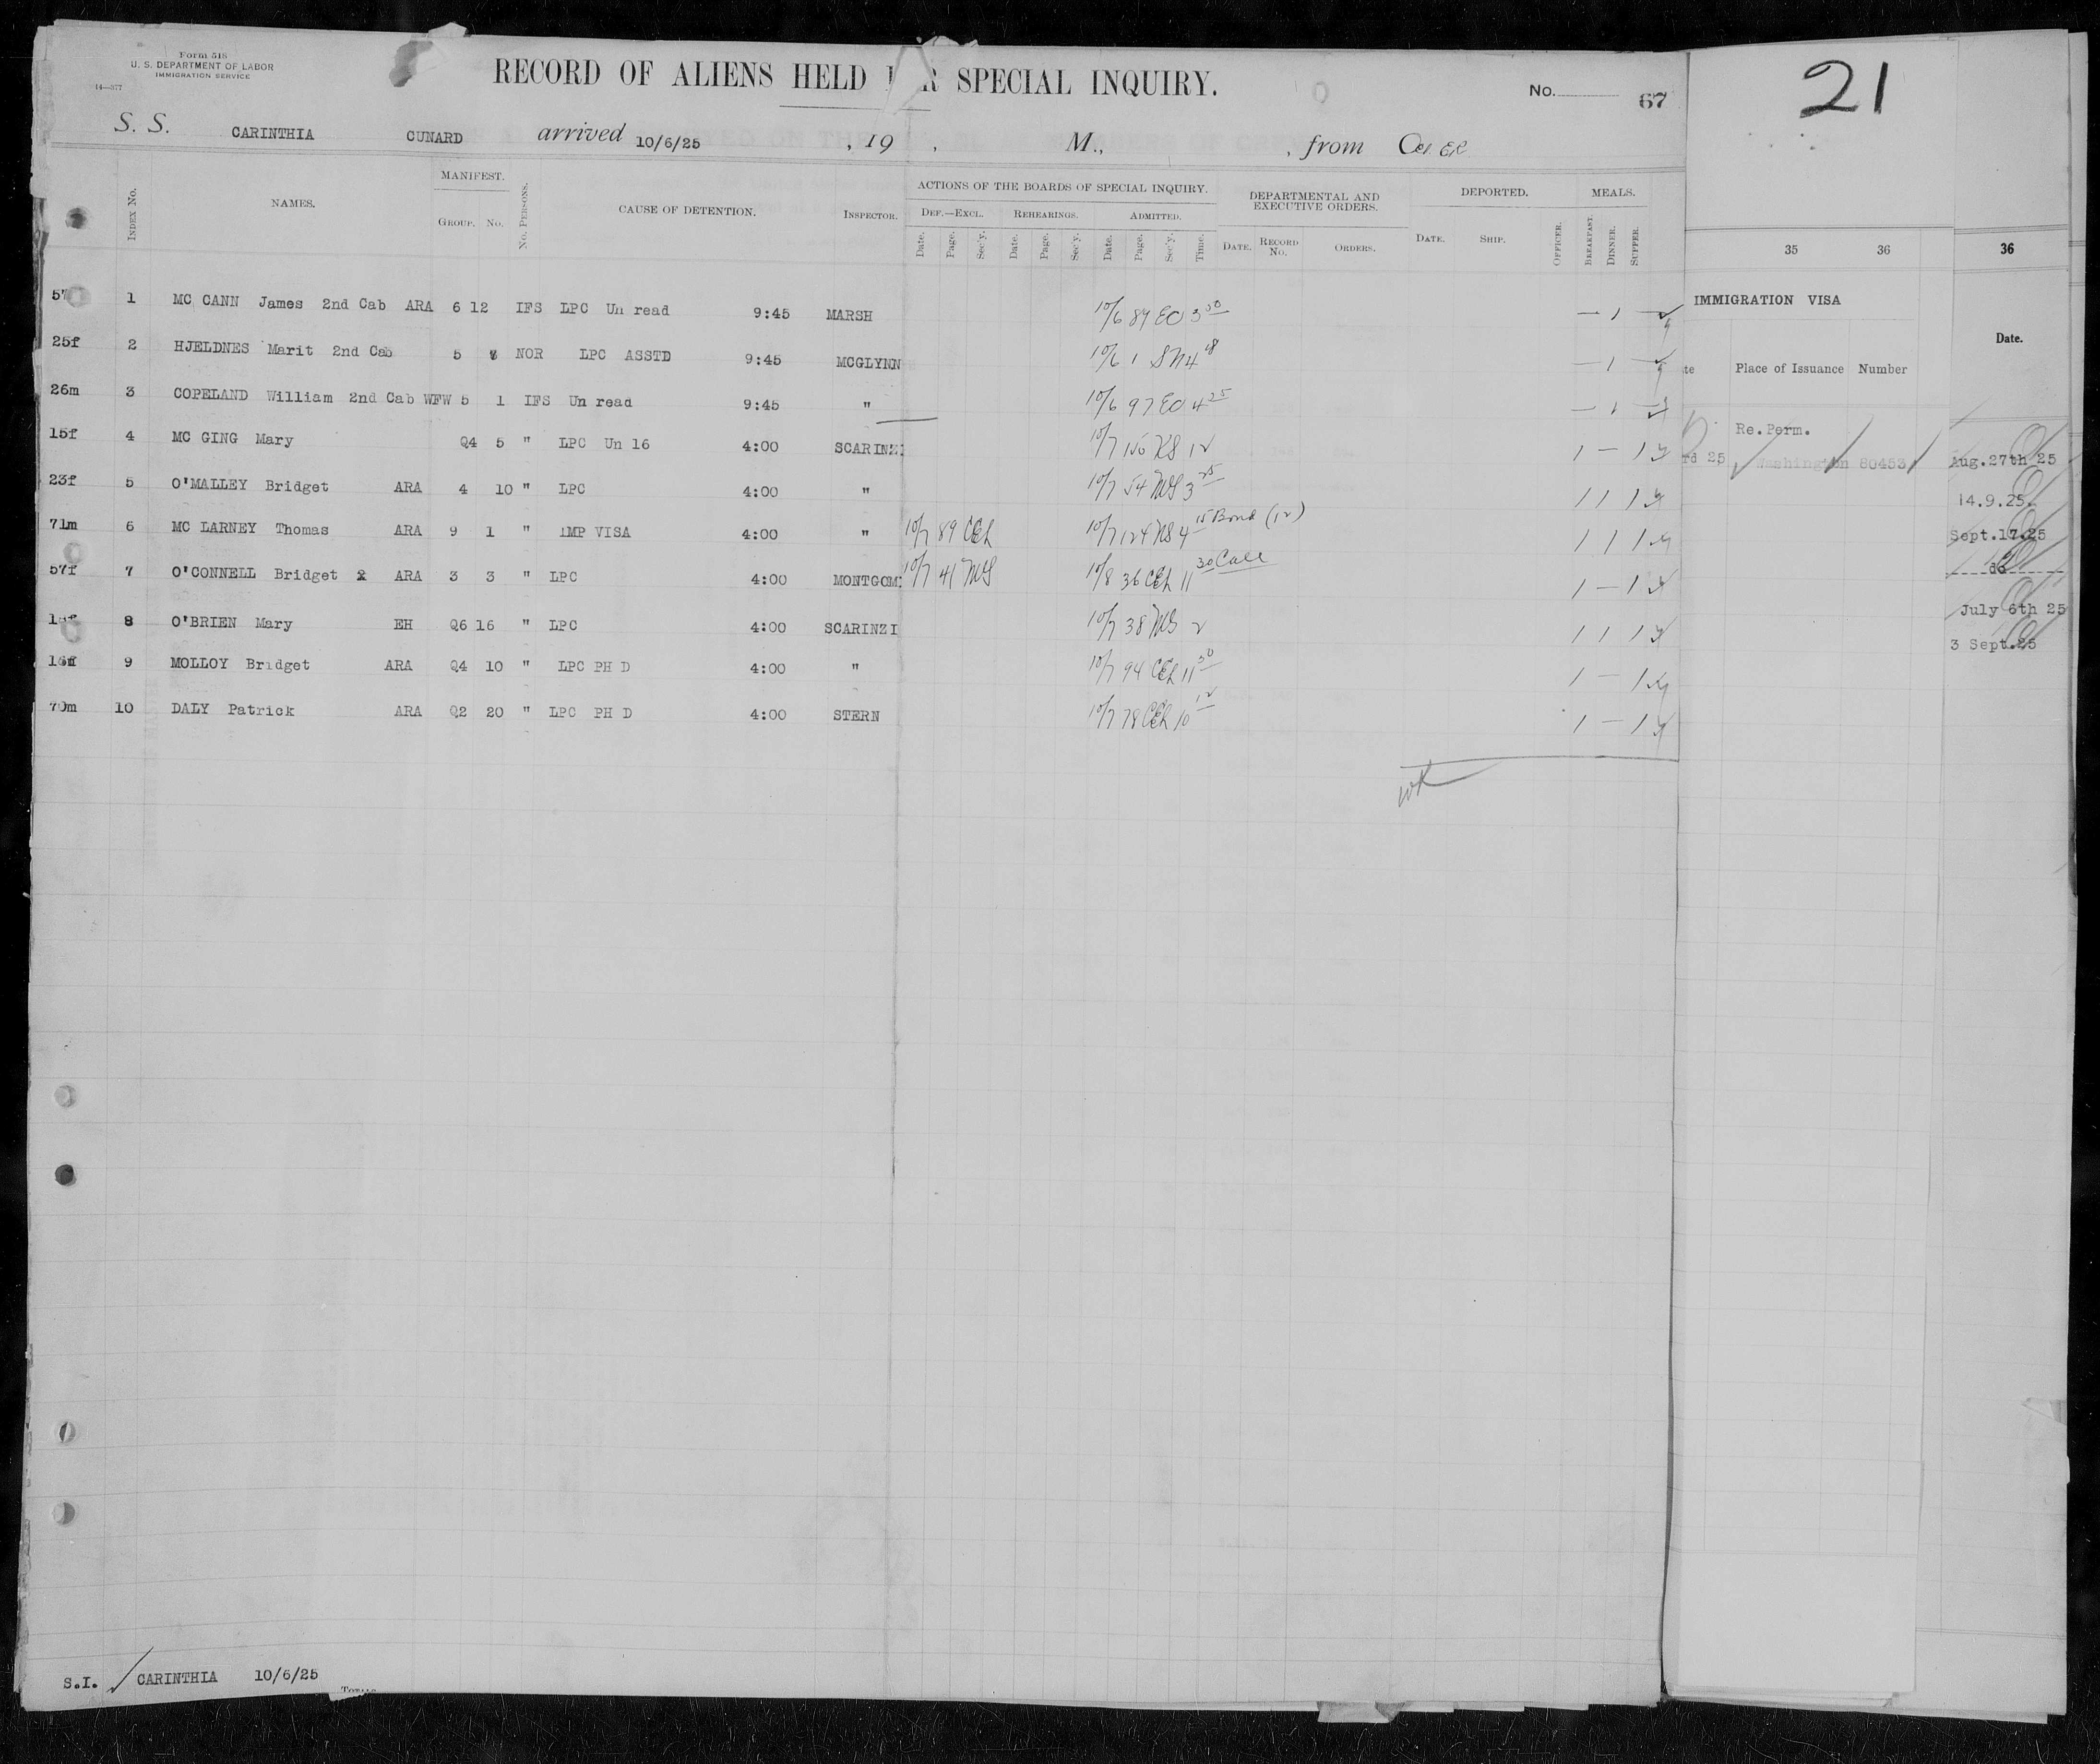 Form 518
U. S. DEPARTMENT OF LABOR
IMMIGRATION SERVICE
14—377
RECORD OF ALIENS HELD SPECIAL INQUIRY.
No. 67
S. S. CARINTHIA CUNARD arrived 10/6/25 , 19 , M., , from
INDEX No. NAMES. MANIFEST. GROUP. No. No. PERSONS. CAUSE OF DETENTION. INSPECTOR. ACTIONS OF THE BOARDS OF SPECIAL INQUIRY. DEPARTMENTAL AND EXECUTIVE ORDERS. DEPORTED. MEALS.
DEF.—EXCL. REHEARINGS. ADMITTED.
Date. Page. Sec'y. Date. Page. Sec'y. Date. Page. Sec'y. Time. DATE. RECORD No. ORDERS. DATE. SHIP. OFFICER. BREAKFAST. DINNER. SUPPER.
1 MC CANN James 2nd Cab ARA 6 12 IFS LPC Un read 9:45 MARSH 10/6 89 EO 3 50 — 1 —
25f 2 HJELDNES Marit 2nd Cab 5 NOR LPC ASSTD 9:45 MCGLYNN 10/6 1 4 18 — 1 —
26m 3 COPELAND William 2nd Cab WFW 5 1 IFS Un read 9:45 " 10/6 97 EO 4 25 — 1 —
15f 4 MC GING Mary Q4 5 " LPC Un 16 4:00 SCARINZI 10/7 12 1 — 1
23f 5 O'MALLEY Bridget ARA 4 10 " LPC 4:00 " 10/7 54 MS 3 25 1 1 1
71m 6 MC LARNEY Thomas ARA 9 1 " IMP VISA 4:00 " 10/7 89 CEL 10/7 124 4 15 Bond (12) 1 1 1
57f 7 O'CONNELL Bridget ARA 3 3 " LPC 4:00 MONTGOM 10/7 41 MS 10/8 36 CEL 11 30 Call 1 — 1
8 O'BRIEN Mary EH Q6 16 " LPC 4:00 SCARINZI 10/7 38 MS 2 1 1 1
9 MOLLOY Bridget ARA Q4 10 " LPC PH D 4:00 " 10/7 94 CEL 11 30 1 — 1
70m 10 DALY Patrick ARA Q2 20 " LPC PH D 4:00 STERN 10/7 78 CEL 10 12 1 — 1
S.I. CARINTHIA 10/6/25
21
35 36
IMMIGRATION VISA
Place of Issuance Number
Re.Perm.
rd 25 Washington 80453
36
Date.
Aug.27th 25
14.9.25.
Sept.17.25
do
July 6th 25
3 Sept.25